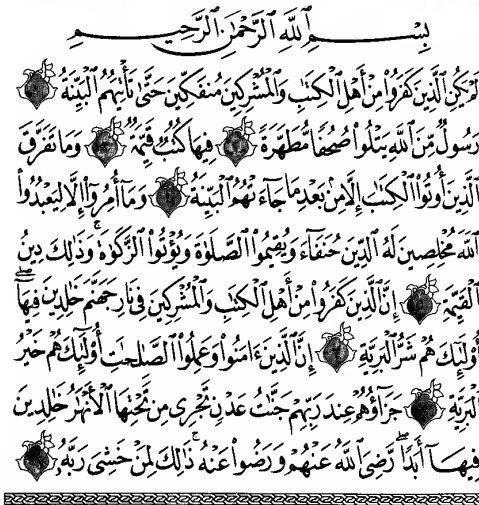 بِسْمِ اللَّهِ الرَّحْمَٰنِ الرَّحِيمِ
لَمْ يَكُنِ الَّذِينَ كَفَرُوا مِنْ أَهْلِ الْكِتَابِ وَالْمُشْرِكِينَ مُنفَكِّينَ حَتَّىٰ تَأْتِيَهُمُ الْبَيِّنَةُ ١
رَسُولٌ مِّنَ اللَّهِ يَتْلُوا صُحُفًا مُّطَهَّرَةً ٢ فِيهَا كُتُبٌ قَيِّمَةٌ ٣ وَمَا تَفَرَّقَ
الَّذِينَ أُوتُوا الْكِتَابَ إِلَّا مِن بَعْدِ مَا جَاءَتْهُمُ الْبَيِّنَةُ ٤ وَمَا أُمِرُوا إِلَّا لِيَعْبُدُوا
اللَّهَ مُخْلِصِينَ لَهُ الدِّينَ حُنَفَاءَ وَيُقِيمُوا الصَّلَوٰةَ وَيُؤْتُوا الزَّكَوٰةَ ۚ وَذَٰلِكَ دِينُ
الْقَيِّمَةِ ٥ إِنَّ الَّذِينَ كَفَرُوا مِنْ أَهْلِ الْكِتَابِ وَالْمُشْرِكِينَ فِي نَارِ جَهَنَّمَ خَالِدِينَ فِيهَا ۚ
أُولَٰئِكَ هُمْ شَرُّ الْبَرِيَّةِ ٦ إِنَّ الَّذِينَ ءَامَنُوا وَعَمِلُوا الصَّالِحَاتِ أُولَٰئِكَ هُمْ خَيْرُ
الْبَرِيَّةِ ٧ جَزَاؤُهُمْ عِندَ رَبِّهِمْ جَنَّاتُ عَدْنٍ تَجْرِي مِن تَحْتِهَا الْأَنْهَارُ خَالِدِينَ
فِيهَا أَبَدًا ۖ رَّضِيَ اللَّهُ عَنْهُمْ وَرَضُوا عَنْهُ ۚ ذَٰلِكَ لِمَنْ خَشِيَ رَبَّهُ ٨